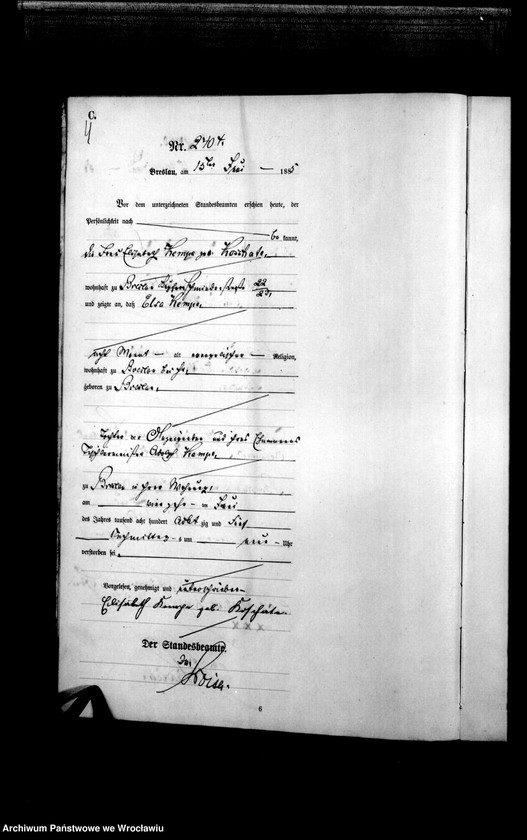 C.
4
Nr. 2404.
Breslau, am 15ten Juni 1885
Vor dem unterzeichneten Standesbeamten erschien heute, der
Persönlichkeit nach
be kannt,
die Frau Elisabeth Kempe geb. Koschate,
wohnhaft zu Breslau Kupferschmiedestraße 22/23,
und zeigte an, daß Elsa Kempe,
acht Monat alt evangelischer Religion,
wohnhaft zu Breslau bei ihr,
geboren zu Breslau,
Tochter der Anzeigenden und ihres Ehemannes
Tischlermeister Adolph Kempe,
zu Breslau in ihrer Wohnung,
am Juni
des Jahres tausend acht hundert acht zig und fünf
Nachmittags um Uhr
verstorben sei.
Vorgelesen, genehmigt und unterschrieben
Elisabeth Kempe geb: Koschate.
Der Standesbeamte.
6
Archiwum Państwowe we Wrocławiu